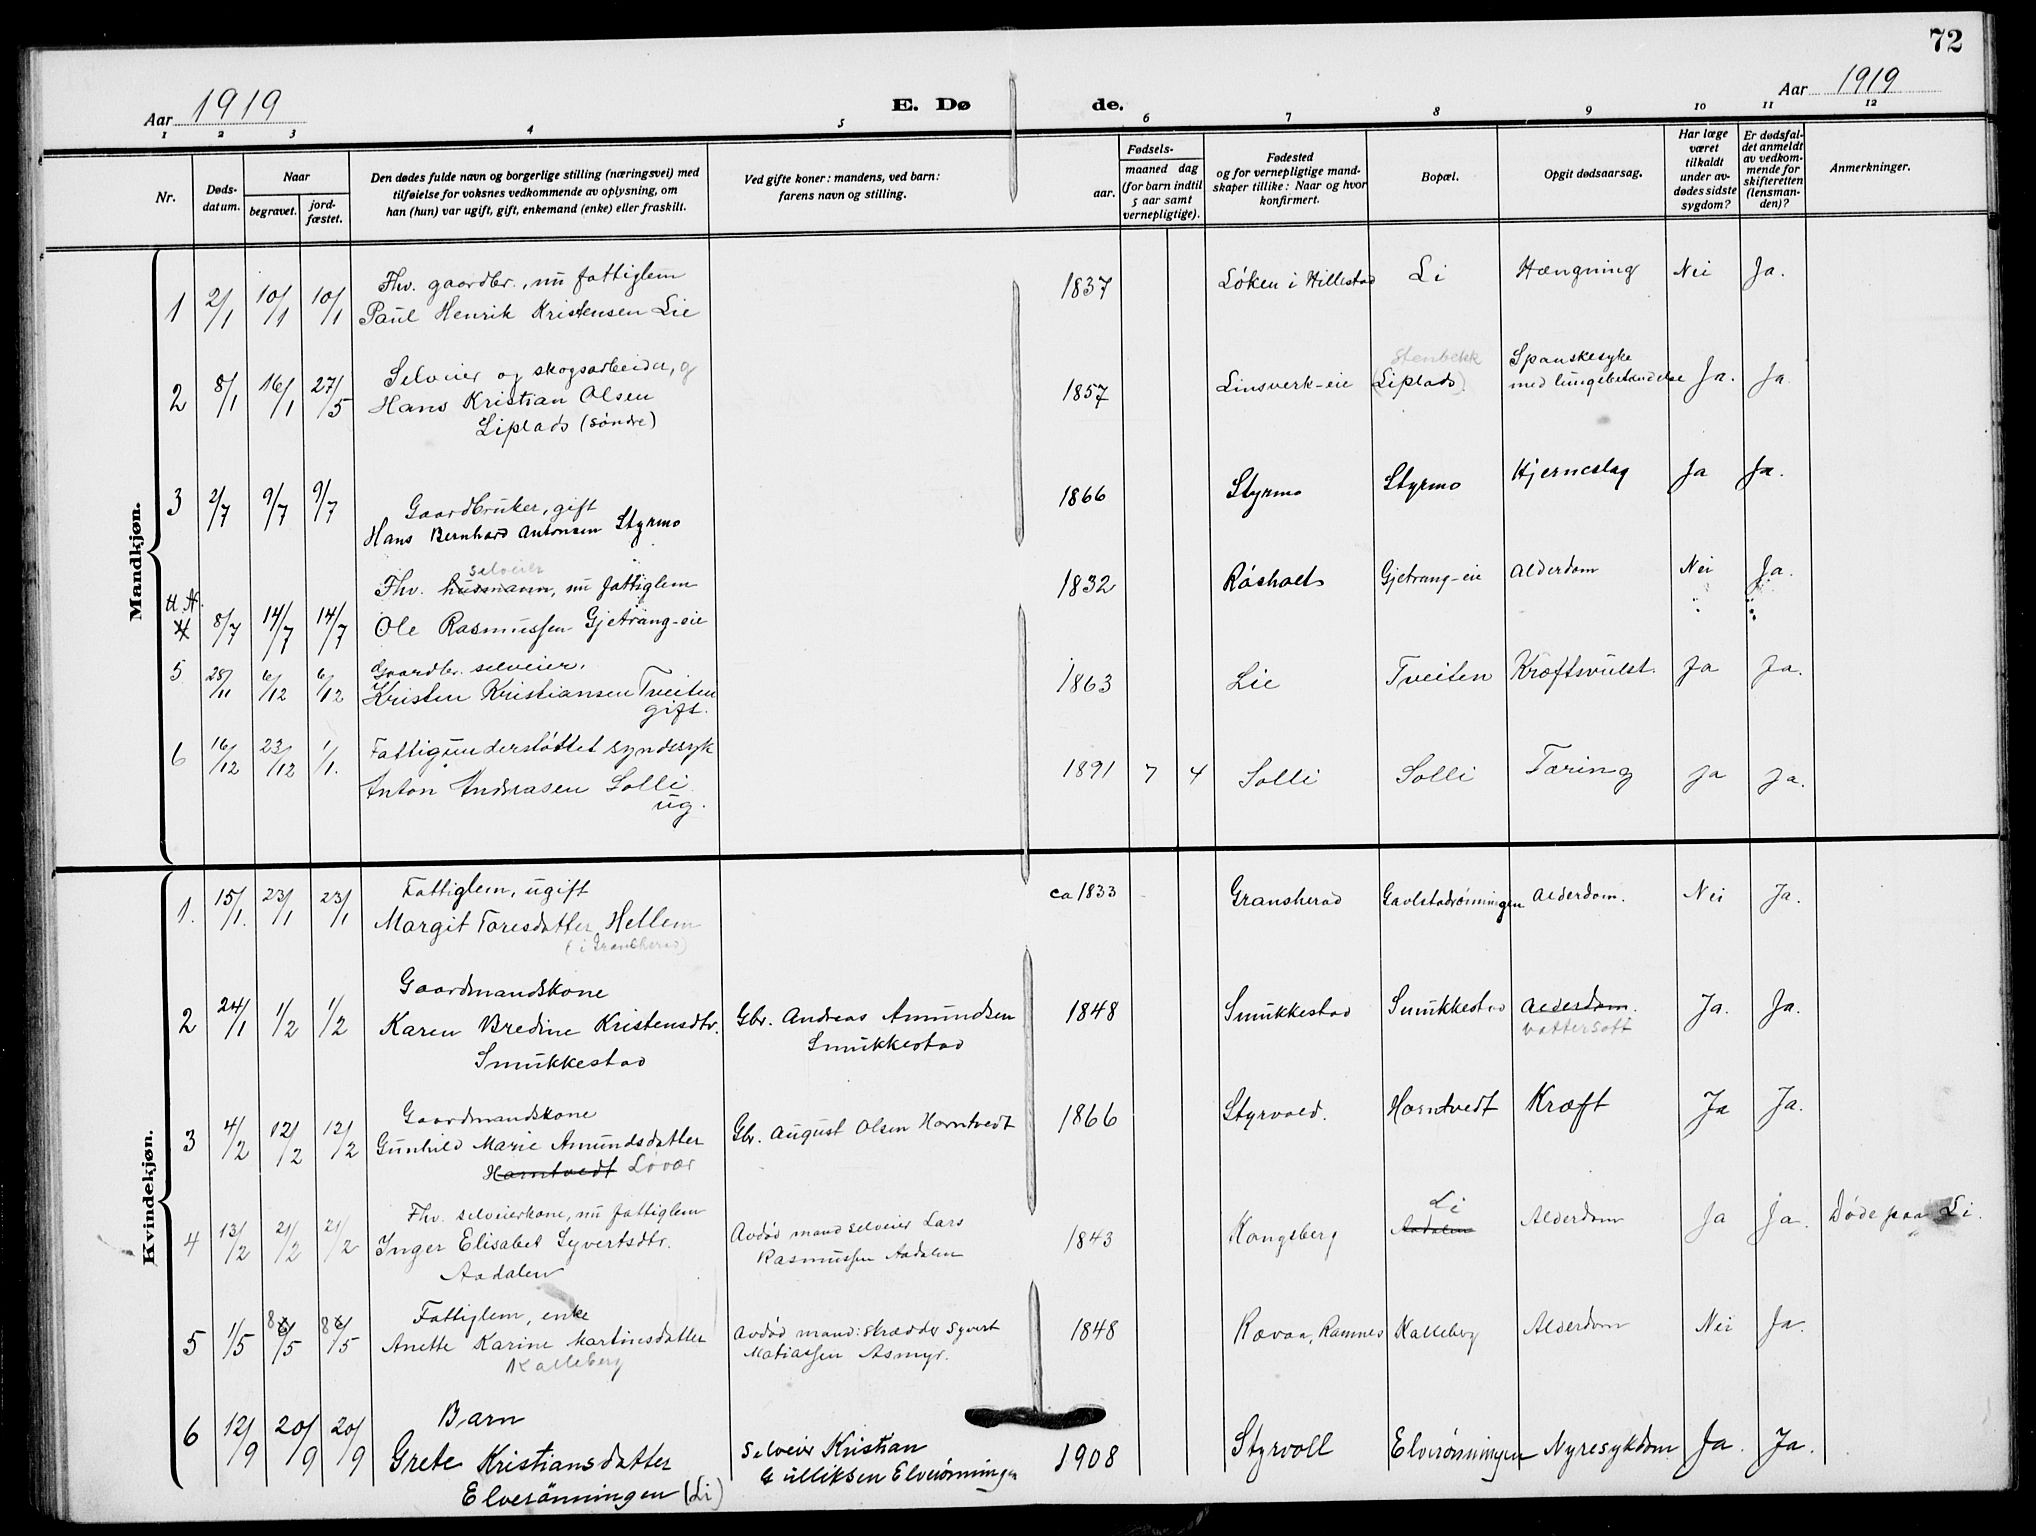 72
Aar 1919
E. Dø de.
Aar 1919
1 2 3 4 5 6 7 8 9 10 11 12
Nr.
Døds-
datum.
Naar
begravet.
jord-
fæstet.
Den dødes fulde navn og borgerlige stilling (næringsvei) med
tilføielse for voksnes vedkommende av oplysning, om
han (hun) var ugift, gift, enkemand (enke) eller fraskilt.
Ved gifte koner: mandens, ved barn:
farens navn og stilling.
Fødsels-
aar.
maaned dag
(for barn indtil
5 aar samt
vernepligtige).
Fødested
og for vernepligtige mand-
skaper tillike: Naar og hvor
konfirmert.
Bopæl.
Opgit dødsaarsag.
Har læge
været
tilkaldt
under av-
dødes sidste
sygdom?
Er dødsfal-
det anmeldt
av vedkom-
mende for
skifteretten
(lensman-
den)?
Anmerkninger.
Mandkjøn.
Fhv. gaardbr., nu fattiglem
1 2/1 10/1 10/1 Paul Henrik Kristensen Lie 1837 Løken i Hillestad Li Hængning Nei Ja.
Selveier og skogsarbeider, g
Stenbekk Spanskesyke
2 8/1 16/1 27/5 Hans Kristian Olsen 1857 Linsverk-eie (Liplads) med lungebetændelse Ja. Ja
Liplads (søndre)
3 2/7 9/7 9/7 Gaardbruker, gift 1866 Styrmo Styrmo Hjerneslag Ja Ja.
Hans Bernhard Antonsen Styrmo
selveier
Fhv. husmann, nu fattiglem
4 8/7 14/7 14/7 Ole Rasmussen Gjetrang-eie 1832 Råsholt Gjetrang-eie Alderdom Nei Ja.
Gaardbr. selveier.
5 28/11 6/12 6/12 Kristen Kristiansen Tveiten 1863 Lie Tveiten Kræftsvulst. Ja Ja.
gift.
6 16/12 23/12 1/1. Fattigunderstøttet syndssyk
Anton Andreasen Solli 1891 7 4 Solli Solli Tæring Ja Ja.
ug.
Kvindekjøn.
Fattiglem, ugift
1. 15/1. 23/1 23/1 Margit Toresdatter Hellem ca 1833 Gransherad Gavlstadrønningen Alderdom. Nei Ja.
(i Gransherad)
Gaardmandskone
2 24/1 1/2 1/2 Karen Bredine Kristensdtr. Gbr. Andreas Amundsen 1848 Smukkestad Smukkestad Alderdom. Ja. Ja.
Smukkestad Smukkestad Vattersott
Gaardmandskone
3 4/2 12/2 12/2 Gunhild Marie Amundsdatter Gbr. August Olsen Horntvedt 1866 Styrvold. Horntvedt Kræft Ja Ja.
Horntvedt Løvar
Fhv. selveierkone, nu fattiglem
Li
4 13/2 21/2 21/2 Inger Elisabet Syvertsdtr. Avdød mand selveier Lars 1843 Kongsberg Aadalen Alderdom Ja Ja. Døde paa Li.
Aadalen Rasmussen Aadalen
Fattiglem, enke
5 1/5 8/5 8/5 Anette Karine Martinsdatter Avdød mand: skrædder Syvert 1848 Ravaa, Ramnes Kalleberg Alderdom Nei Ja.
Kalleberg Matiassen Asmyr.
Barn
6 12/9 20/9 20/9 Grete Kristiansdatter Selveier Kristian 1908 Styrvoll Elverønningen Nyresykdom Ja. Ja.
Elverønningen (Li) Gulliksen Elverønningen